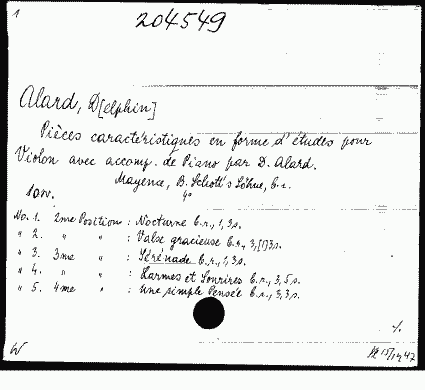 1
204549
Alard, D[elphin]
Pièces caractéristiques en forme d'études pour
Violon avec accomp. de Piano par D. Alard.
Mayence, B. Schott's Söhne, b.r.
4°
No. 1. 2me Position : Nocturne b.r., 1, 3s.
" 2. " " : Valse gracieuse b.r., 3, [1] 3s.
" 3. 3me " : Sérénade b.r., 1, 3s.
" 4. " " : Larmes et Sourires b.r., 3, 5s.
" 5. 4me " : Une simple Pensée b.r., 3, 3s.
W